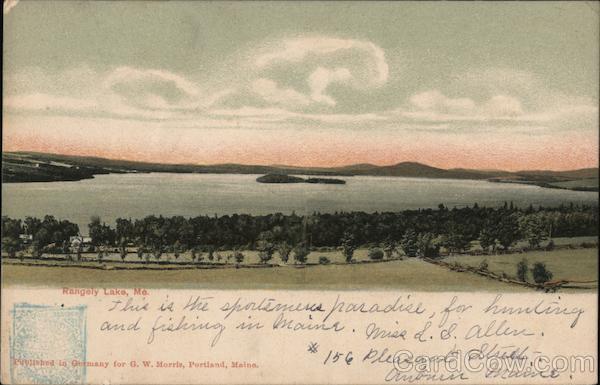 Rangely Lake, Me.
This is the sportsmens paradise, for hunting
and fishing in Maine. Miss L. S. Allen.
* 156 Pleasant Street.
Auburn Maine.
Published in Germany for G. W. Morris, Portland, Maine.
CardCow.com